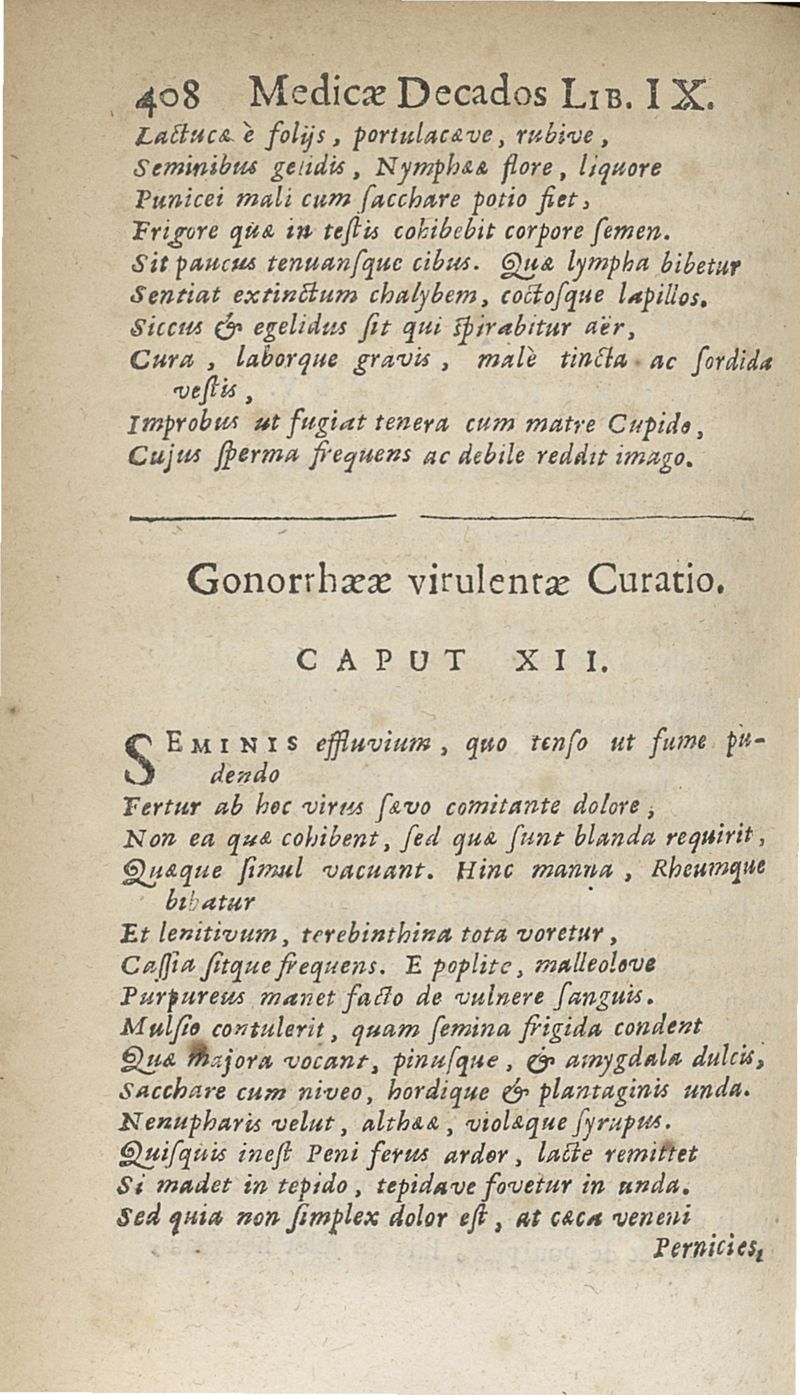 408 Medicæ Decados LIB. IX.
Lactucæ è folijs, portulacæve, rubive,
Seminibus gelidis, Nymphææ flore, liquore
Punicei mali cum ſacchare potio fiet,
Frigore quæ in teſtis cohibebit corpore ſemen.
Sit paucus tenuanſque cibus. Quæ lympha bibetur
Sentiat extinctum chalybem, coctoſque lapillos.
Siccus & egelidus ſit qui ſpirabitur aër,
Cura, laborque gravis, malè tincta ac ſordida
veſtis,
Improbus ut fugiat tenera cum matre Cupido,
Cujus ſperma frequens ac debile reddit imago.
Gonorrhææ virulentæ Curatio.
CAPUT XII.
SEMINIS effluvium, quo tenſo ut fume pu-
dendo
Fertur ab hoc virus ſævo comitante dolore,
Non ea quæ cohibent, ſed quæ ſunt blanda requirit,
Quæque ſimul vacuant. Hinc manna, Rheumque
bibatur
Et lenitivum, terebinthina tota voretur,
Caſſia ſitque frequens. E poplite, malleolove
Purpureus manet facto de vulnere ſanguis.
Mulſio contulerit, quam ſemina frigida condent
Quæ majora vocant, pinuſque, & amygdala dulcis,
Sacchare cum niveo, hordique & plantaginis unda.
Nenupharis velut, althææ, violæque ſyrupus.
Quiſquis ineſt Peni ferus ardor, lacte remittet
Si madet in tepido, tepidave fovetur in unda.
Sed quia non ſimplex dolor eſt, at cæca veneni
Pernicies,